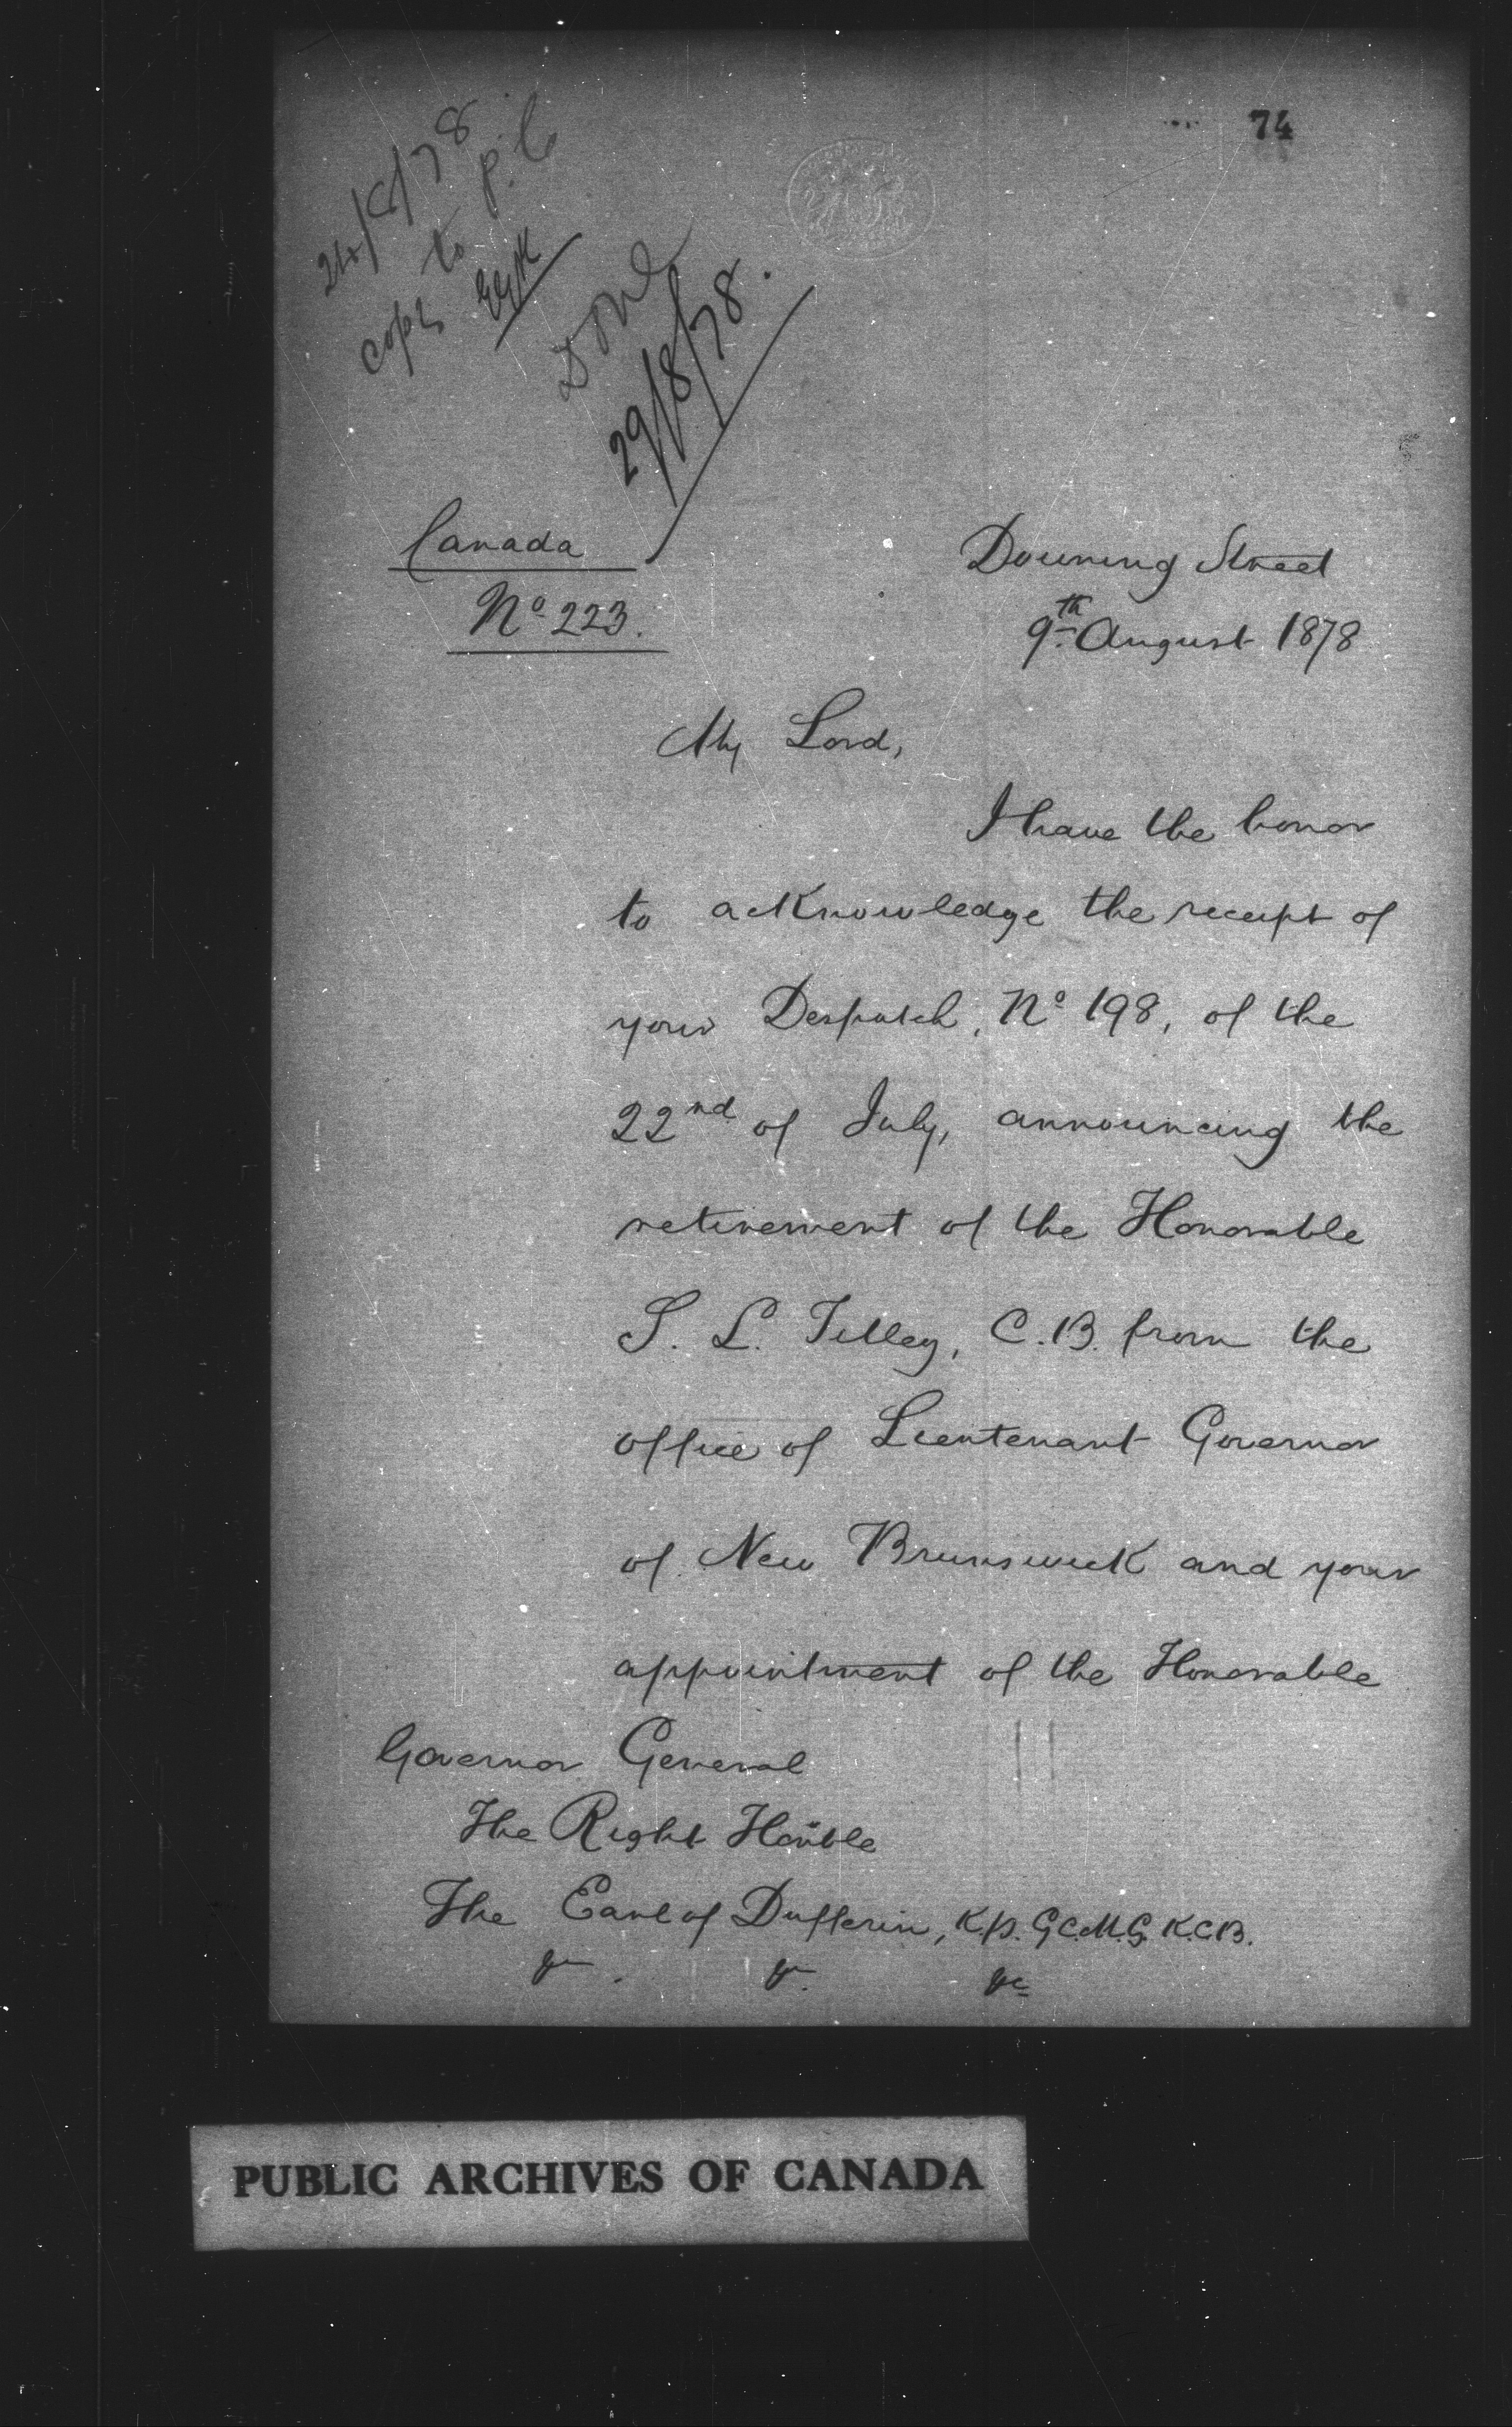 74
24/8/78
copy to P.C.
Done
29/8/78.
Canada
Nº 223.
Downing Street
9th August 1878
My Lord,
I have the honor
to acknowledge the receipt of
your Despatch, Nº 198, of the
22nd of July, announcing the
retirement of the Honorable
S. L. Tilley, C.B. from the
office of Lieutenant Governor
of New Brunswick and your
appointment of the Honorable
Governor General
The Right Honble
The Earl of Dufferin, K.P. G.C.M.G. K.C.B.
&c. &c. &c
PUBLIC ARCHIVES OF CANADA